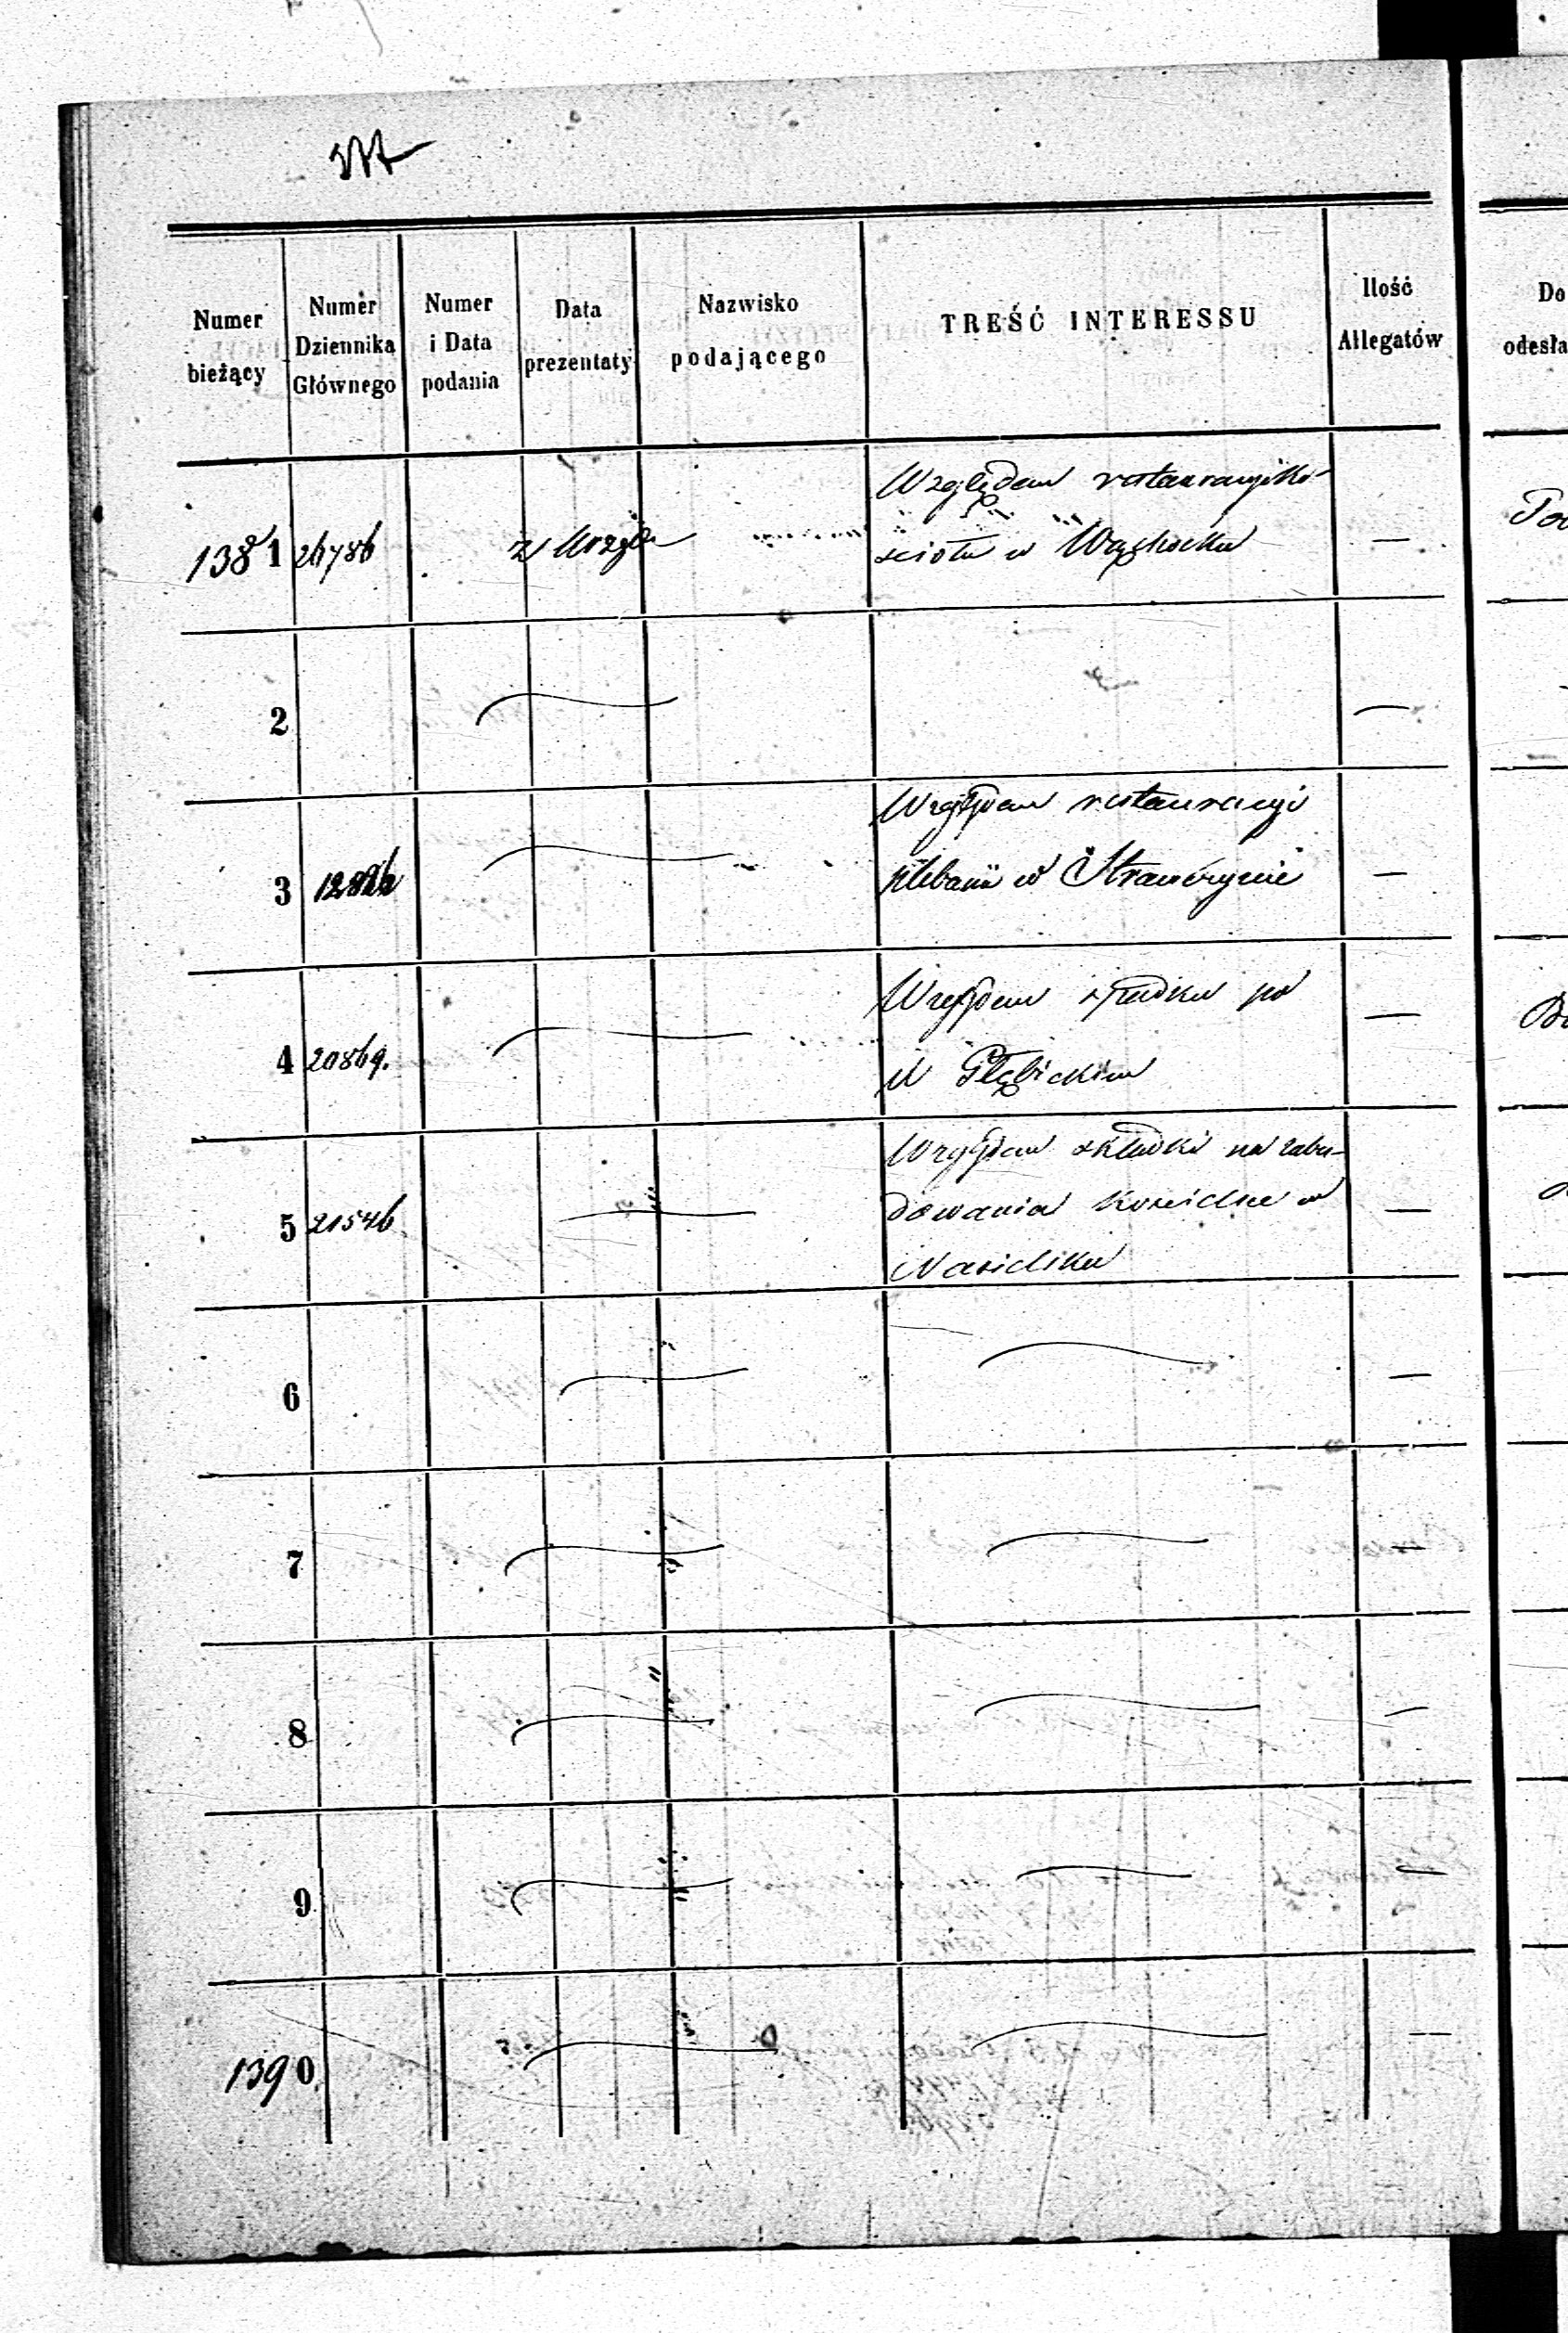 Numer bieżący
Numer Dziennika Głównego
Numer i Data podania
Data prezentaty
Nazwisko podającego
TREŚĆ INTERESSU
Ilość Allegatów
Do
odesła
1381 26786 z Urzędu Względem restauracyi ko-
ścioła w Wąchocku —
2 —
3 Względem restauracyi
plebanii w —
4 20869. Względem spadku po
—
5 21546 Względem składki na zabu-
dowania kościelne w
Nasielsku —
6 —
7 —
8 —
9 —
1390 —